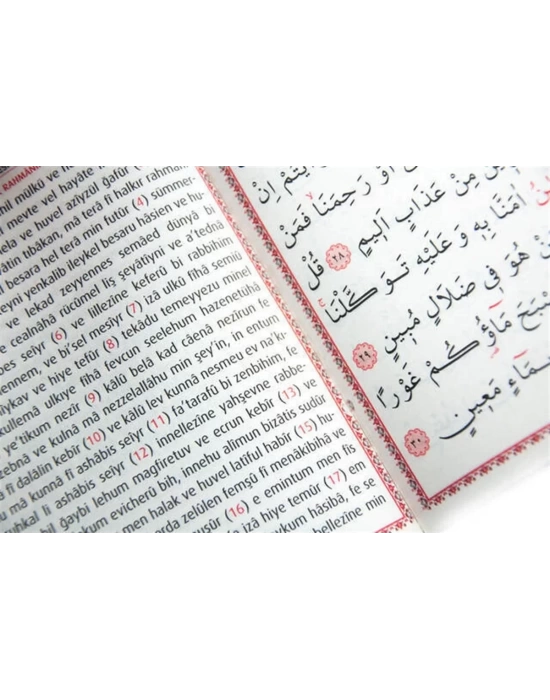 RAHMANİ
mülkü ve
meyte vel hayâte
ve huvel azîyzül ğafûr
tıbâkan, mâ terâ fî halkır rahmâni
besara hel terâ min futûr (4) sümmer-
yenkalib ileykel besaru hâsien ve hu-
ve lekad zeyyennes semâed dünyâ bi
ve cealnâhâ rücûmel liş şeyâtîyni ve a'tednâ
seıyr (6) ve lillezîne keferû bi rabbihim
ve bi'sel mesîyr (7) izâ ulkû fîhâ semiû
ve hiye tefûr (8) tekâdu temeyyezu minel
ulkıye fîhâ fevcun seelehum hazenetühâ
ye'tikum nezîr (9) kâlû belâ kad câenâ nezîrun fe
ve kulnâ mâ nezzelallâhu min şey'in, in entum
fî dalâlin kebîr (10) ve kâlû lev kunnâ nesmeu ev na'kı-
mâ kunnâ fî ashâbis seıyr (11) fa'tarafû bi zenbihim, fe
li ashâbis seıyr (12) innellezîne yahşevne rabbe-
bil ğaybi lehum mağfiretuv ve ecrun kebîr (13) ve
evicherû bih, innehu alîmun bizâtis sudûr
men halak ve huvel latîful habîr (15) hu-
zelûlen femşû fî menâkibihâ ve
(16) e emintum men fis
izâ hiye temûr (17) em
hâsıbâ, fe se
بْتُمْ اِنْ
اَوْ رَحِمَنَا فَمَنْ
مِنْ عَذَابٍ اَلِيمٍ ٢٨ قُلْ
اٰمَنَّا بِهِ وَ عَلَيْهِ تَوَكَّلْنَا
هُوَ فِي ضَلَالٍ مُبِينٍ ٢٩
مَاۤؤُكُمْ غَوْرًا
مَعِينٍ ٣٠